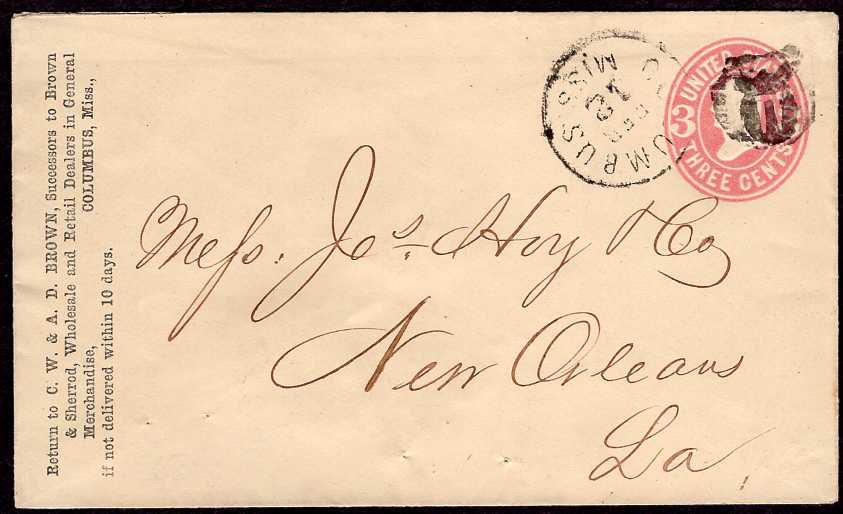 Return to C. W. & A. D. BROWN, Successors to Brown
& Sherrod, Wholesale and Retail Dealers in General
Merchandise, COLUMBUS, Miss.,
if not delivered within 10 days.
COLUMBUS MISS
FEB
UNITED
3
THREE CENTS
Mess. Jos. Hoy & Co
New Orleans
La